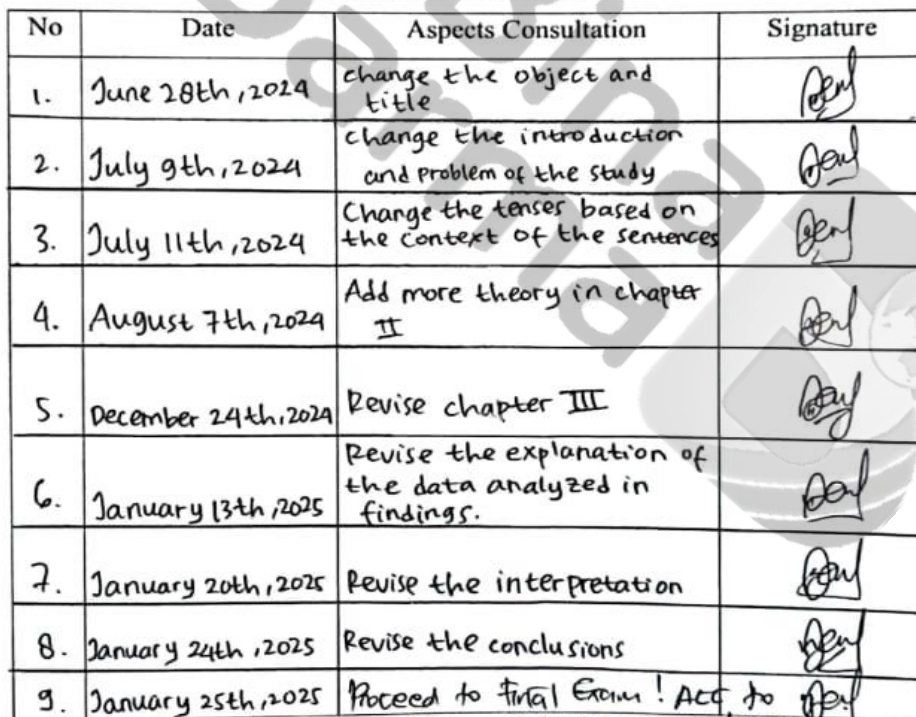 No Date Aspects Consultation Signature
1. June 28th, 2024 change the object and
title
2. July 9th, 2024 change the introduction
and problem of the study
3. July 11th, 2024 Change the tenses based on
the context of the sentences
4. August 7th, 2024 Add more theory in chapter
II
5. December 24th, 2024 Revise chapter III
6. January 13th, 2025 Revise the explanation of
the data analyzed in
findings.
7. January 20th, 2025 Revise the interpretation
8. January 24th, 2025 Revise the conclusions
9. January 25th, 2025 Proceed to Final Exam! Acc to